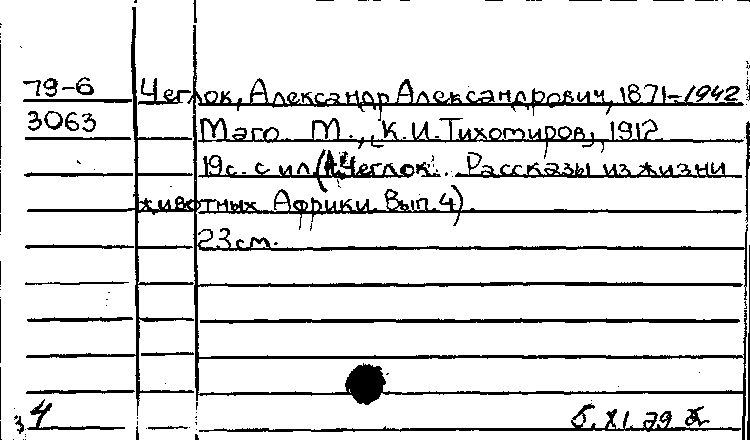 79-6 Чеглок, Александр Александрович, 1871-1942
3063 Маго. М., К.И. Тихомиров, 1912
19с. с ил (А. Чеглок. Рассказы из жизни
животных Африки. Вып. 4).
23см.
з 4 5.XI.79